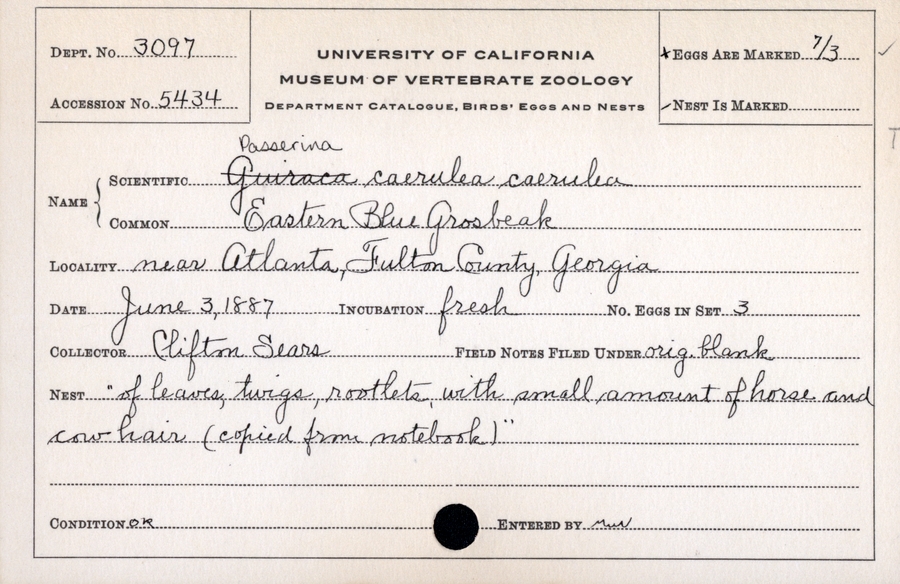 DEPT. No. 3097
ACCESSION No. 5434
UNIVERSITY OF CALIFORNIA
MUSEUM OF VERTEBRATE ZOOLOGY
DEPARTMENT CATALOGUE, BIRDS' EGGS AND NESTS
EGGS ARE MARKED 7/3
NEST IS MARKED
Passerina
NAME
SCIENTIFIC Guiraca caerulea caerulea
COMMON Eastern Blue Grosbeak
LOCALITY near Atlanta, Fulton County, Georgia
DATE June 3, 1887 INCUBATION fresh No. EGGS IN SET 3
COLLECTOR Clifton Sears FIELD NOTES FILED UNDER orig. blank
NEST "of leaves, twigs, rootlets, with small amount of horse and
cow hair (copied from notebook)"
CONDITION OK ENTERED BY